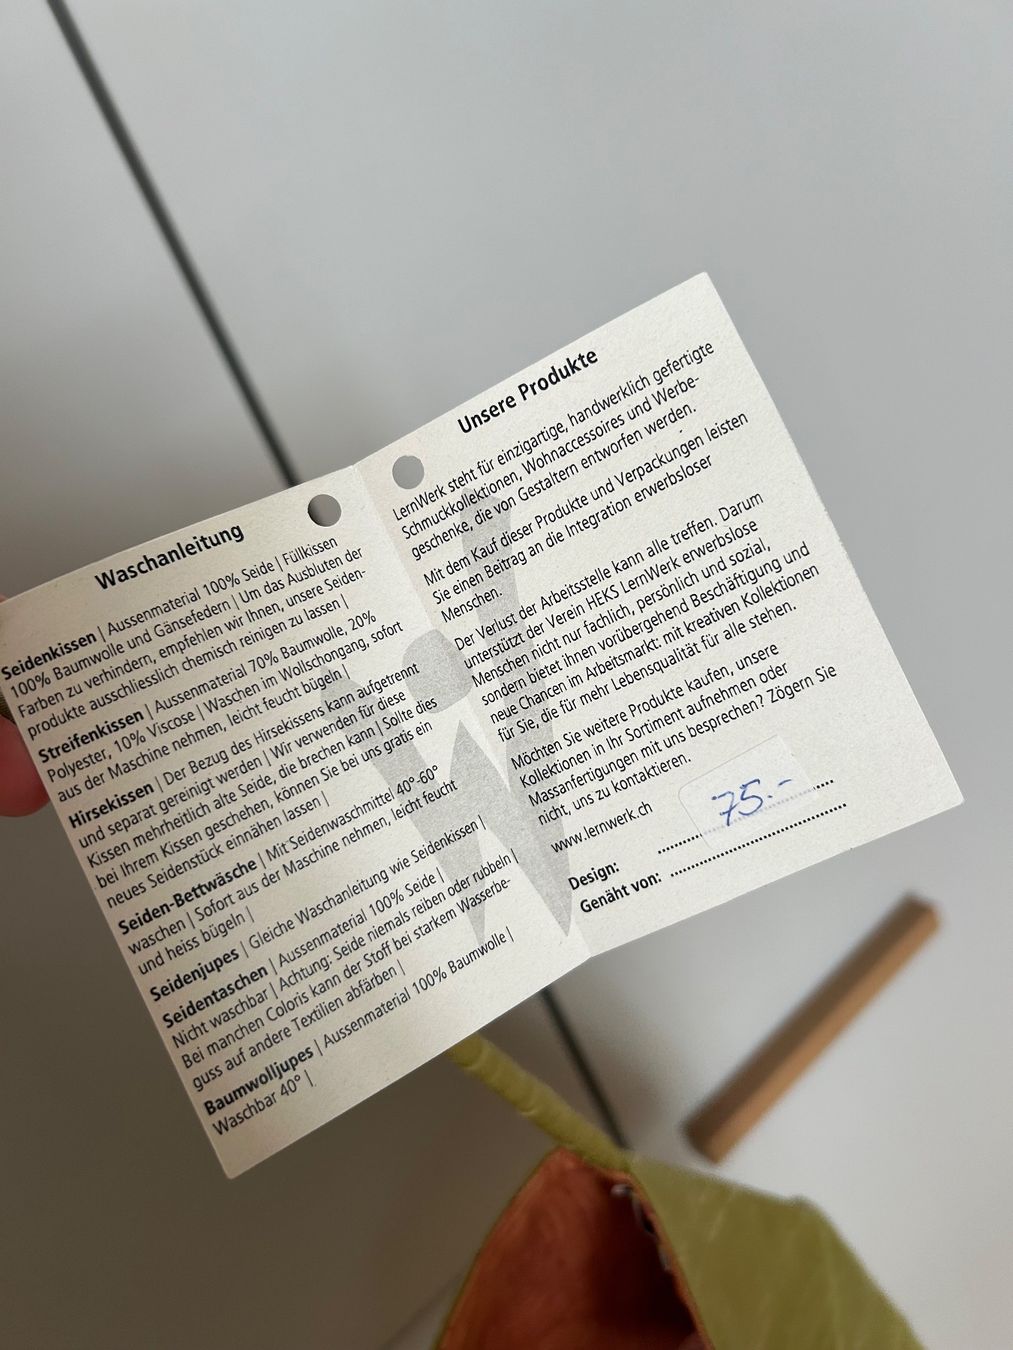 Waschanleitung
Seidenkissen | Aussenmaterial 100% Seide | Füllkissen
100% Baumwolle und Gänsefedern | Um das Ausbluten der
Farben zu verhindern, empfehlen wir Ihnen, unsere Seiden-
produkte ausschliesslich chemisch reinigen zu lassen |
Streifenkissen | Aussenmaterial 70% Baumwolle, 20%
Polyester, 10% Viscose | Waschen im Wollschongang, sofort
aus der Maschine nehmen, leicht feucht bügeln |
Hirsekissen | Der Bezug des Hirsekissens kann aufgetrennt
und separat gereinigt werden | Wir verwenden für diese
Kissen mehrheitlich alte Seide, die brechen kann | Sollte dies
bei Ihrem Kissen geschehen, können Sie bei uns gratis ein
neues Seidenstück einnähen lassen |
Seiden-Bettwäsche | Mit Seidenwaschmittel 40°-60°
waschen | Sofort aus der Maschine nehmen, leicht feucht
und heiss bügeln |
Seidenjupes | Gleiche Waschanleitung wie Seidenkissen |
Seidentaschen | Aussenmaterial 100% Seide |
Nicht waschbar | Achtung: Seide niemals reiben oder rubbeln |
Bei manchen Coloris kann der Stoff bei starkem Wasserbe-
guss auf andere Textilien abfärben |
Baumwolljupes | Aussenmaterial 100% Baumwolle |
Waschbar 40° |
Unsere Produkte
LernWerk steht für einzigartige, handwerklich gefertigte
Schmuckkollektionen, Wohnaccessoires und Werbe-
geschenke, die von Gestaltern entworfen werden.
Mit dem Kauf dieser Produkte und Verpackungen leisten
Sie einen Beitrag an die Integration erwerbsloser
Menschen.
Der Verlust der Arbeitsstelle kann alle treffen. Darum
unterstützt der Verein HEKS LernWerk erwerbslose
Menschen nicht nur fachlich, persönlich und sozial,
sondern bietet ihnen vorübergehend Beschäftigung und
neue Chancen im Arbeitsmarkt: mit kreativen Kollektionen
für Sie, die für mehr Lebensqualität für alle stehen.
Möchten Sie weitere Produkte kaufen, unsere
Kollektionen in Ihr Sortiment aufnehmen oder
Massanfertigungen mit uns besprechen? Zögern Sie
nicht, uns zu kontaktieren.
www.lernwerk.ch
75.-
Design:
Genäht von: